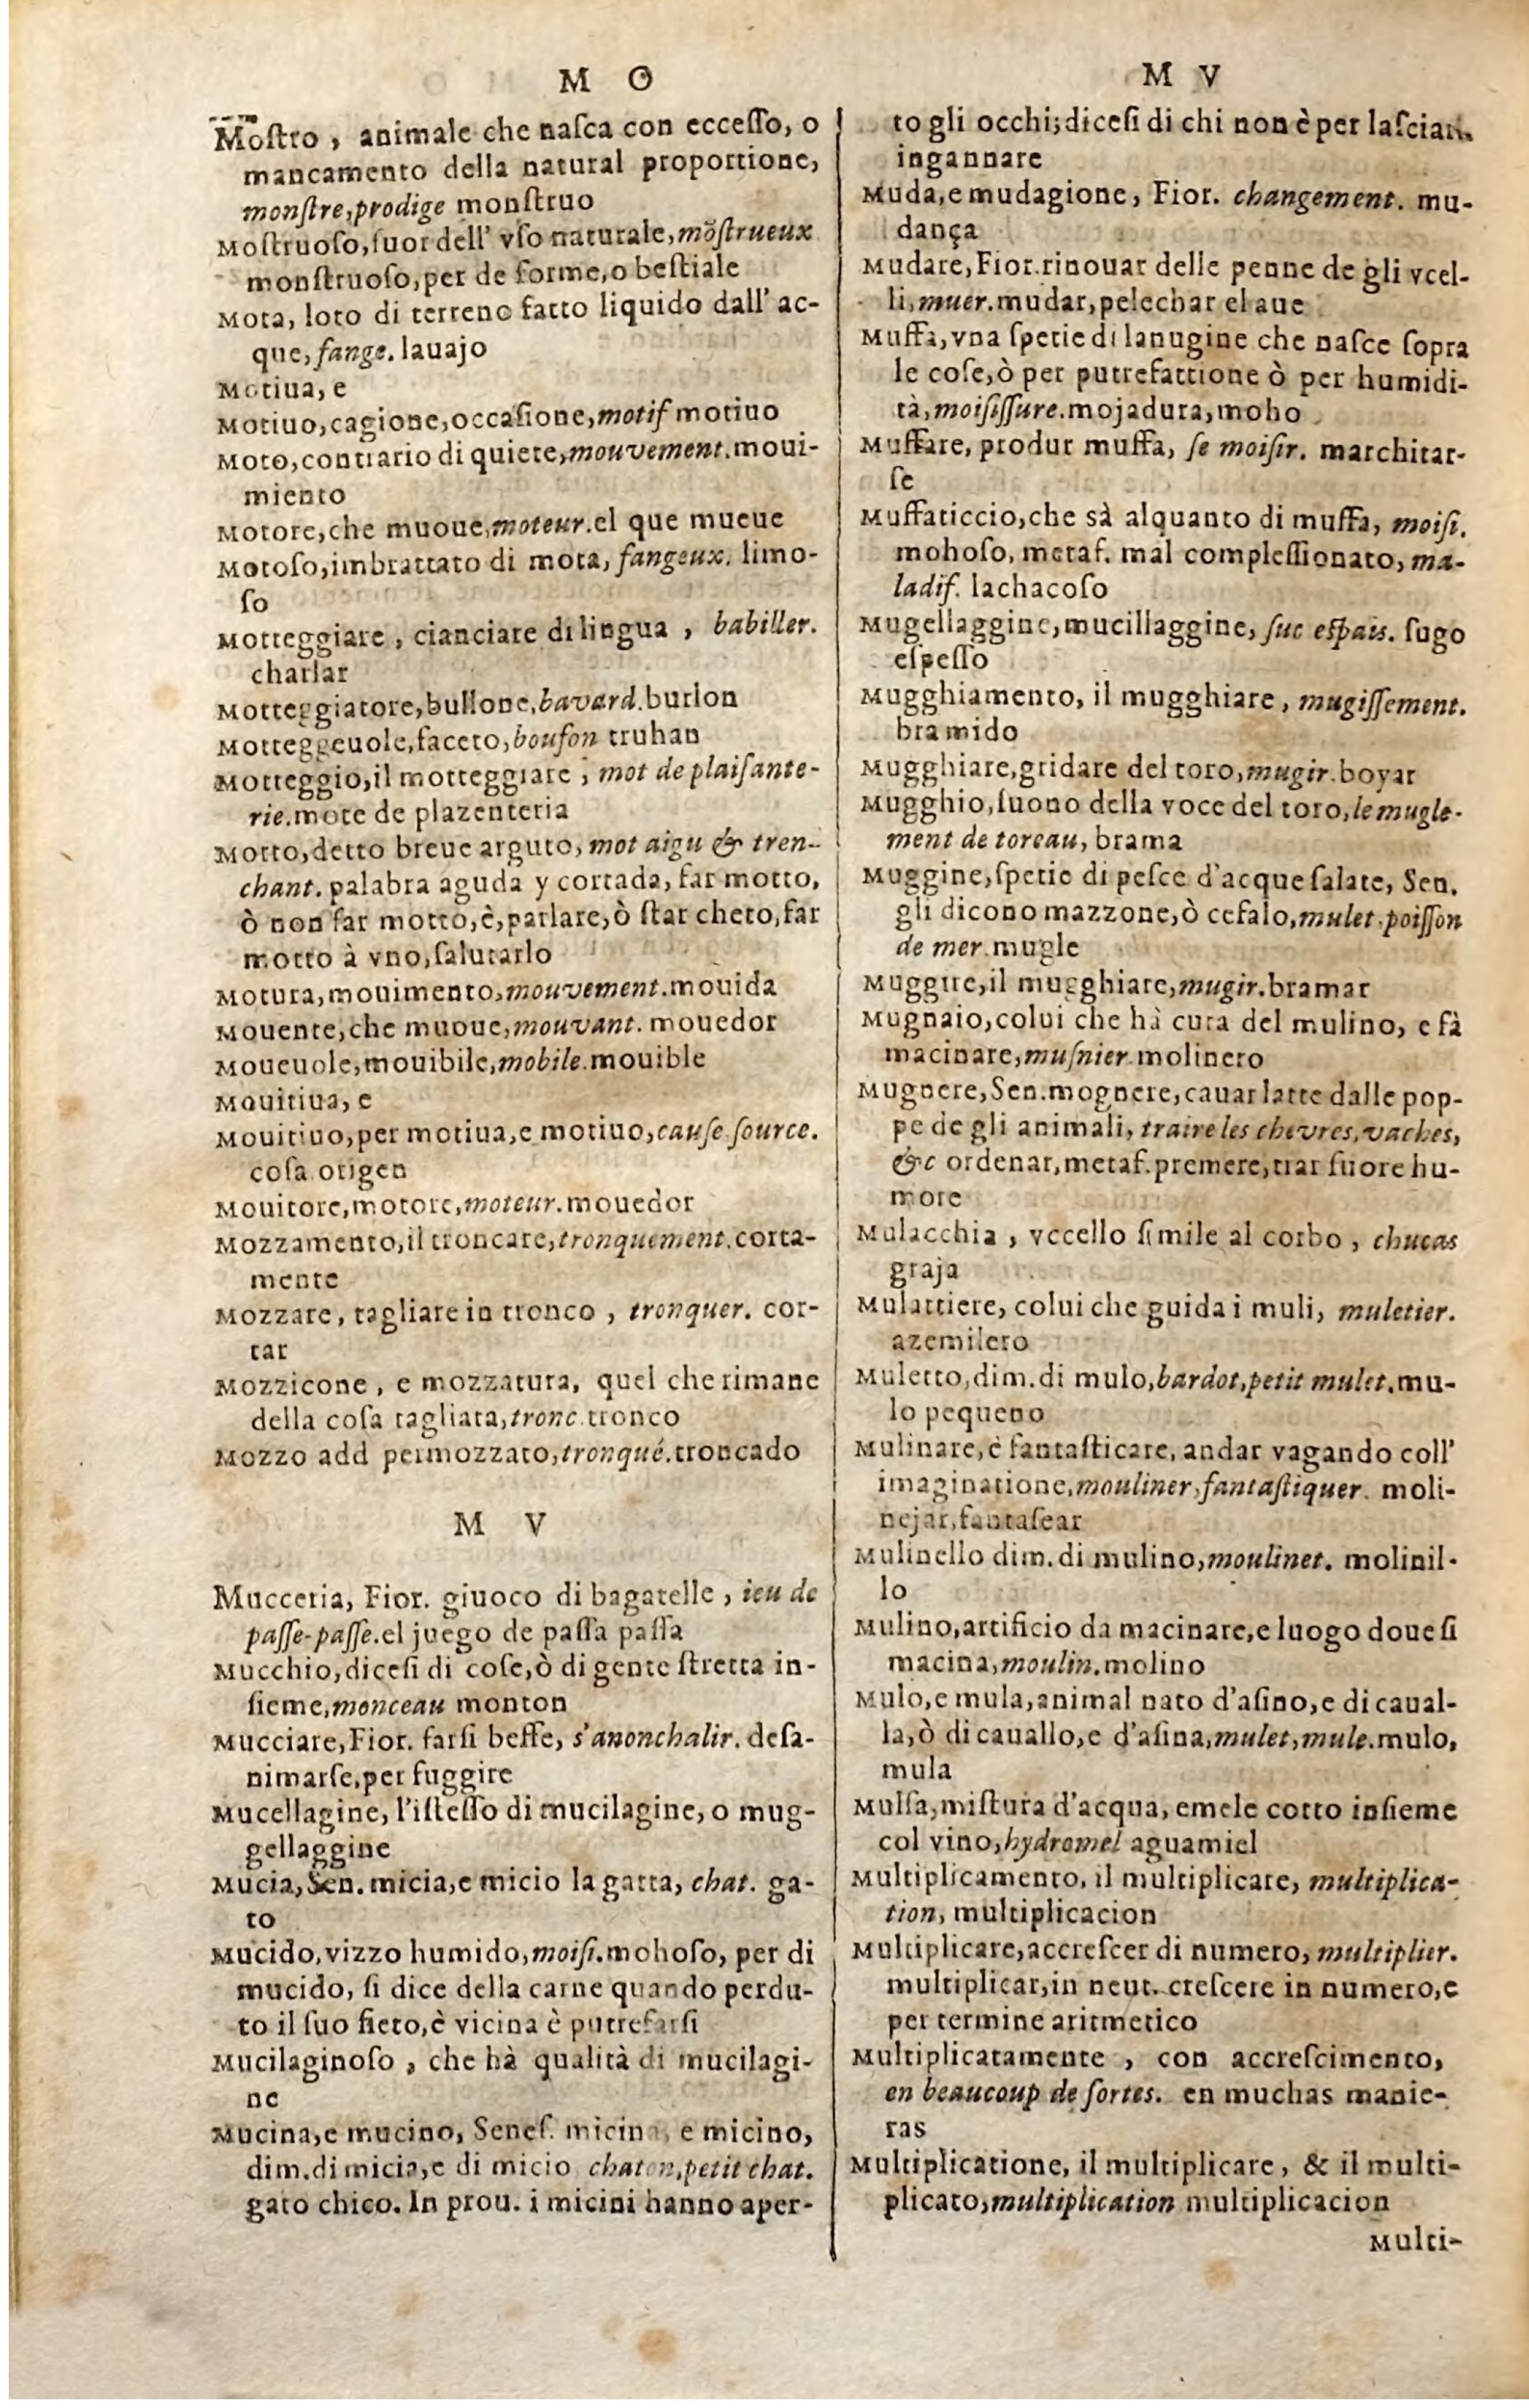 M O
Moſtro, animale che naſca con ecceſſo, o
mancamento della natural proportione,
monſtre, prodige monſtruo
Moſtruoſo, fuor dell' vſo naturale, mõſtrueux
monſtruoſo, per de forme, o beſtiale
Mota, loto di terreno fatto liquido dall' ac-
que, fange. lauajo
Motiua, e
Motiuo, cagione, occaſione, motif motiuo
Moto, contrario di quiete, mouvement. moui-
miento
Motore, che muoue, moteur. el que mueue
Motoſo, imbrattato di mota, fangeux. limo-
ſo
Motteggiare, cianciare di lingua, babiller.
charlar
Motteggiatore, buffone, bavard. burlon
Motteggeuole, faceto, boufon truhan
Motteggio, il motteggiare, mot de plaiſante-
rie. mote de plazenteria
Motto, detto breue arguto, mot aigu & tren-
chant. palabra aguda y cortada, far motto,
ò non far motto, è, parlare, ò ſtar cheto, far
motto à vno, ſalutarlo
Motura, mouimento, mouvement. mouida
Mouente, che muoue, mouvant. mouedor
Moueuole, mouibile, mobile. mouible
Mouitiua, e
Mouitiuo, per motiua, e motiuo, cauſe ſource.
coſa origen
Mouitore, motore, moteur. mouedor
Mozzamento, il troncare, tronquement. corta-
mente
Mozzare, tagliare in tronco, tronquer. cor-
tar
Mozzicone, e mozzatura, quel che rimane
della coſa tagliata, tronc tronco
Mozzo add permozzato, tronqué. troncado
M V
Mucceria, Fior. giuoco di bagatelle, ieu de
paſſe-paſſe. el juego de paſſa paſſa
Mucchio, diceſi di coſe, ò di gente ſtretta in-
ſieme, monceau monton
Mucciare, Fior. farſi beffe, s'anonchalir. deſa-
nimarſe, per fuggire
Mucellagine, l'iſteſſo di mucilagine, o mug-
gellaggine
Mucia, Sen. micia, e micio la gatta, chat. ga-
to
Mucido, vizzo humido, moiſi. mohoſo, per di
mucido, ſi dice della carne quando perdu-
to il ſuo fieto, è vicina è putrefarſi
Mucilaginoſo, che hà qualità di mucilagi-
ne
Mucina, e mucino, Seneſ. micina, e micino,
dim. di micia, e di micio chaton, petit chat.
gato chico. In prou. i micini hanno aper-
M V
to gli occhi; diceſi di chi non è per laſciar
ingannare
Muda, e mudagione, Fior. changement. mu-
dança
Mudare, Fior. rinouar delle penne de gli vcel-
li, muer. mudar, pelechar el aue
Muffa, vna ſpetie di lanugine che naſce ſopra
le coſe, ò per putrefattione ò per humidi-
tà, moiſiſſure. mojadura, moho
Muffare, produr muffa, ſe moiſir. marchitar-
ſe
Muffaticcio, che sà alquanto di muffa, moiſi.
mohoſo, metaf. mal compleſſionato, ma-
ladif. lachacoſo
Mugellaggine, mucillaggine, ſuc eſpais. ſugo
eſpeſſo
Mugghiamento, il mugghiare, mugiſſement.
bramido
Mugghiare, gridare del toro, mugir. boyar
Mugghio, ſuono della voce del toro, le mugle-
ment de toreau, brama
Muggine, ſpetie di peſce d'acque ſalate, Sen.
gli dicono mazzone, ò cefalo, mulet, poiſſon
de mer mugle
Muggire, il mugghiare, mugir. bramar
Mugnaio, colui che hà cura del mulino, e fà
macinare, muſnier molinero
Mugnere, Sen. mognere, cauar latte dalle pop-
pe de gli animali, traire les chevres, vaches,
&c ordenar, metaf. premere, trar fuore hu-
more
Mulacchia, vccello ſimile al corbo, chucas
graja
Mulattiere, colui che guida i muli, muletier.
azemilero
Muletto, dim. di mulo, bardot, petit mulet. mu-
lo pequeno
Mulinare, è fantaſticare, andar vagando coll'
imaginatione, mouliner, fantaſtiquer. moli-
nejar, fantaſear
Mulinello dim. di mulino, moulinet. molinil-
lo
Mulino, artificio da macinare, e luogo doue ſi
macina, moulin. molino
Mulo, e mula, animal nato d'aſino, e di caual-
la, ò di cauallo, e d'aſina, mulet, mule. mulo,
mula
Mulſa, miſtura d'acqua, e mele cotto inſieme
col vino, hydromel aguamiel
Multiplicamento, il multiplicare, multiplica-
tion, multiplicacion
Multiplicare, accreſcer di numero, multiplier.
multiplicar, in neut. creſcere in numero, e
per termine aritmetico
Multiplicatamente, con accreſcimento,
en beaucoup de ſortes. en muchas manie-
ras
Multiplicatione, il multiplicare, & il multi-
plicato, multiplication multiplicacion
Multi-